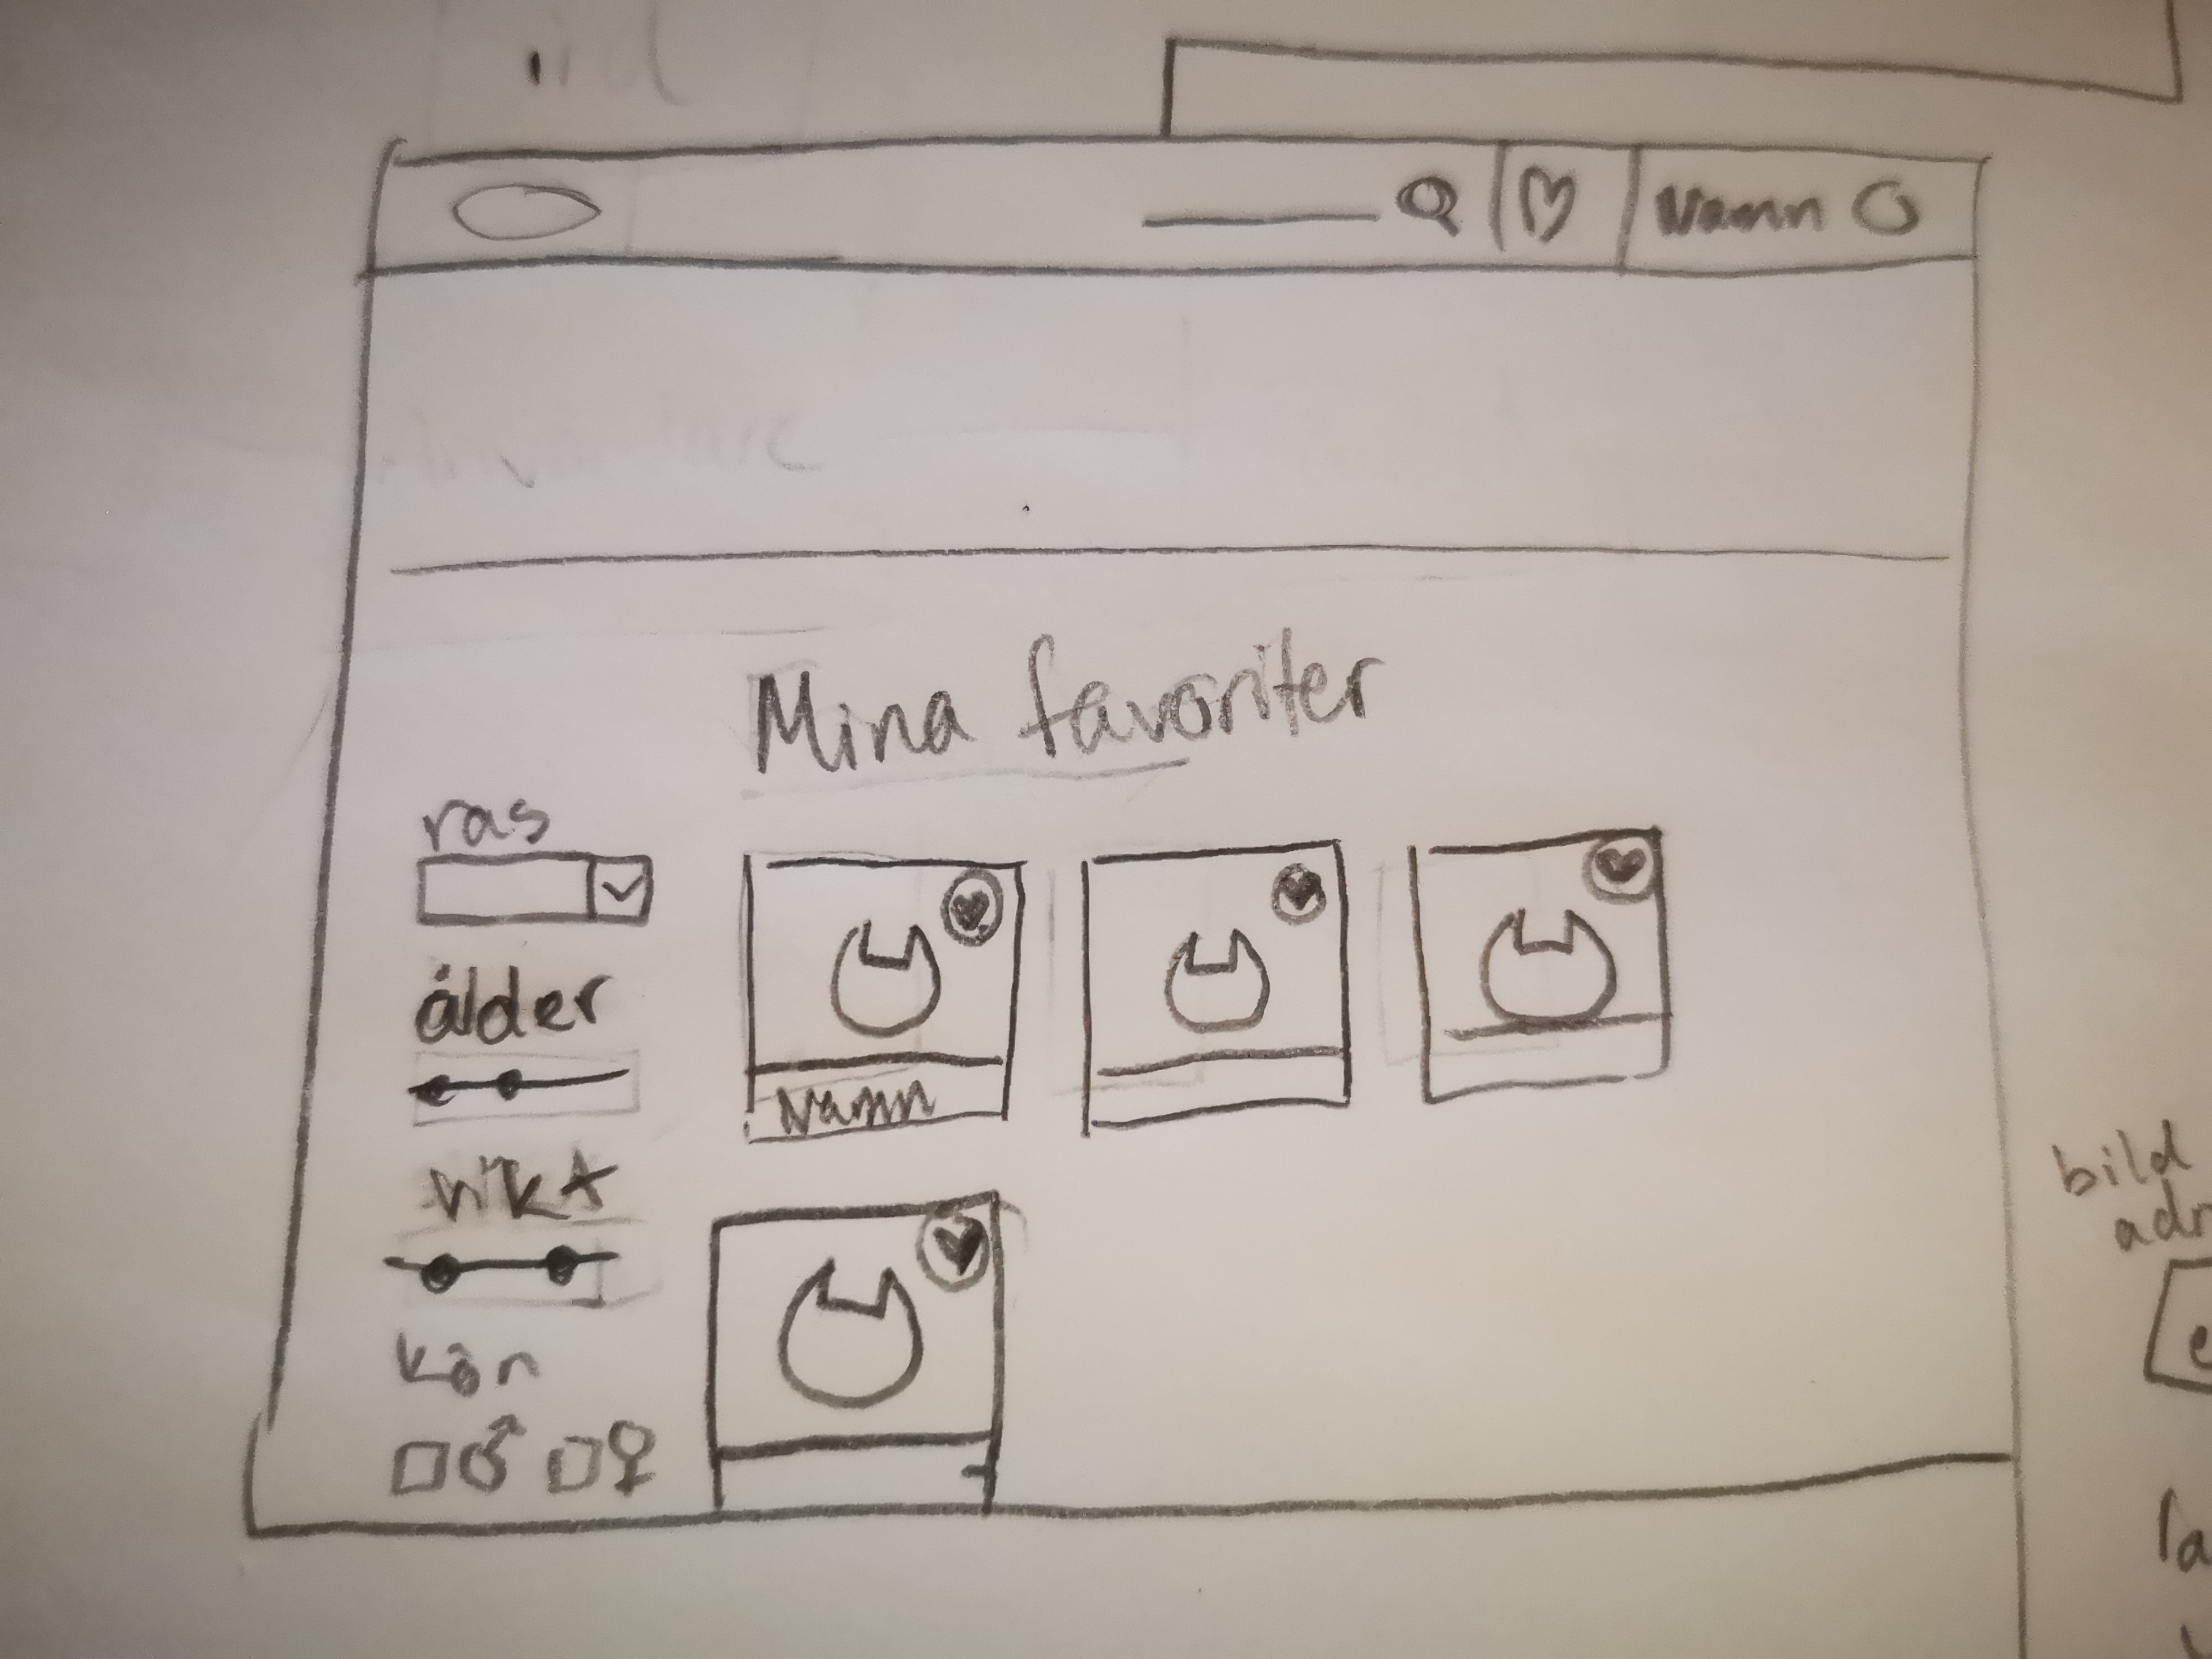 Namn
Mina favoriter
ras
ålder
vikt
kön
Namn
bild